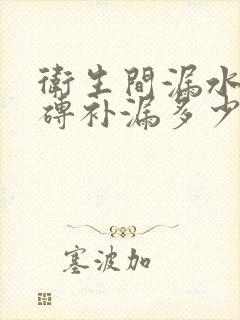 衛生間漏水
磚补漏多少
塞波加